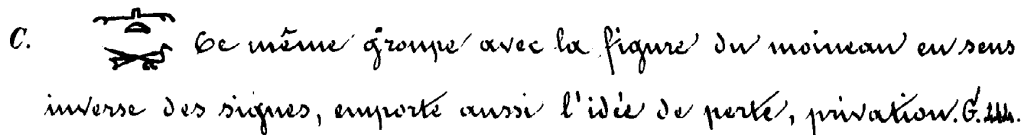 C. Ce même groupe avec la figure du moineau en sens
inverse des signes, emporte aussi l'idée de perte, privation. G.